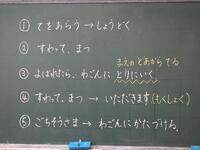 ① てをあらう → しょうどく
② すわって、まつ
まえのとあがらでる
③ よばれたら、わごんにとりにいく。
④ すわって、まつ → いただきます(もくしょく)
⑤ ごちそうさま → わごんにかたづける。